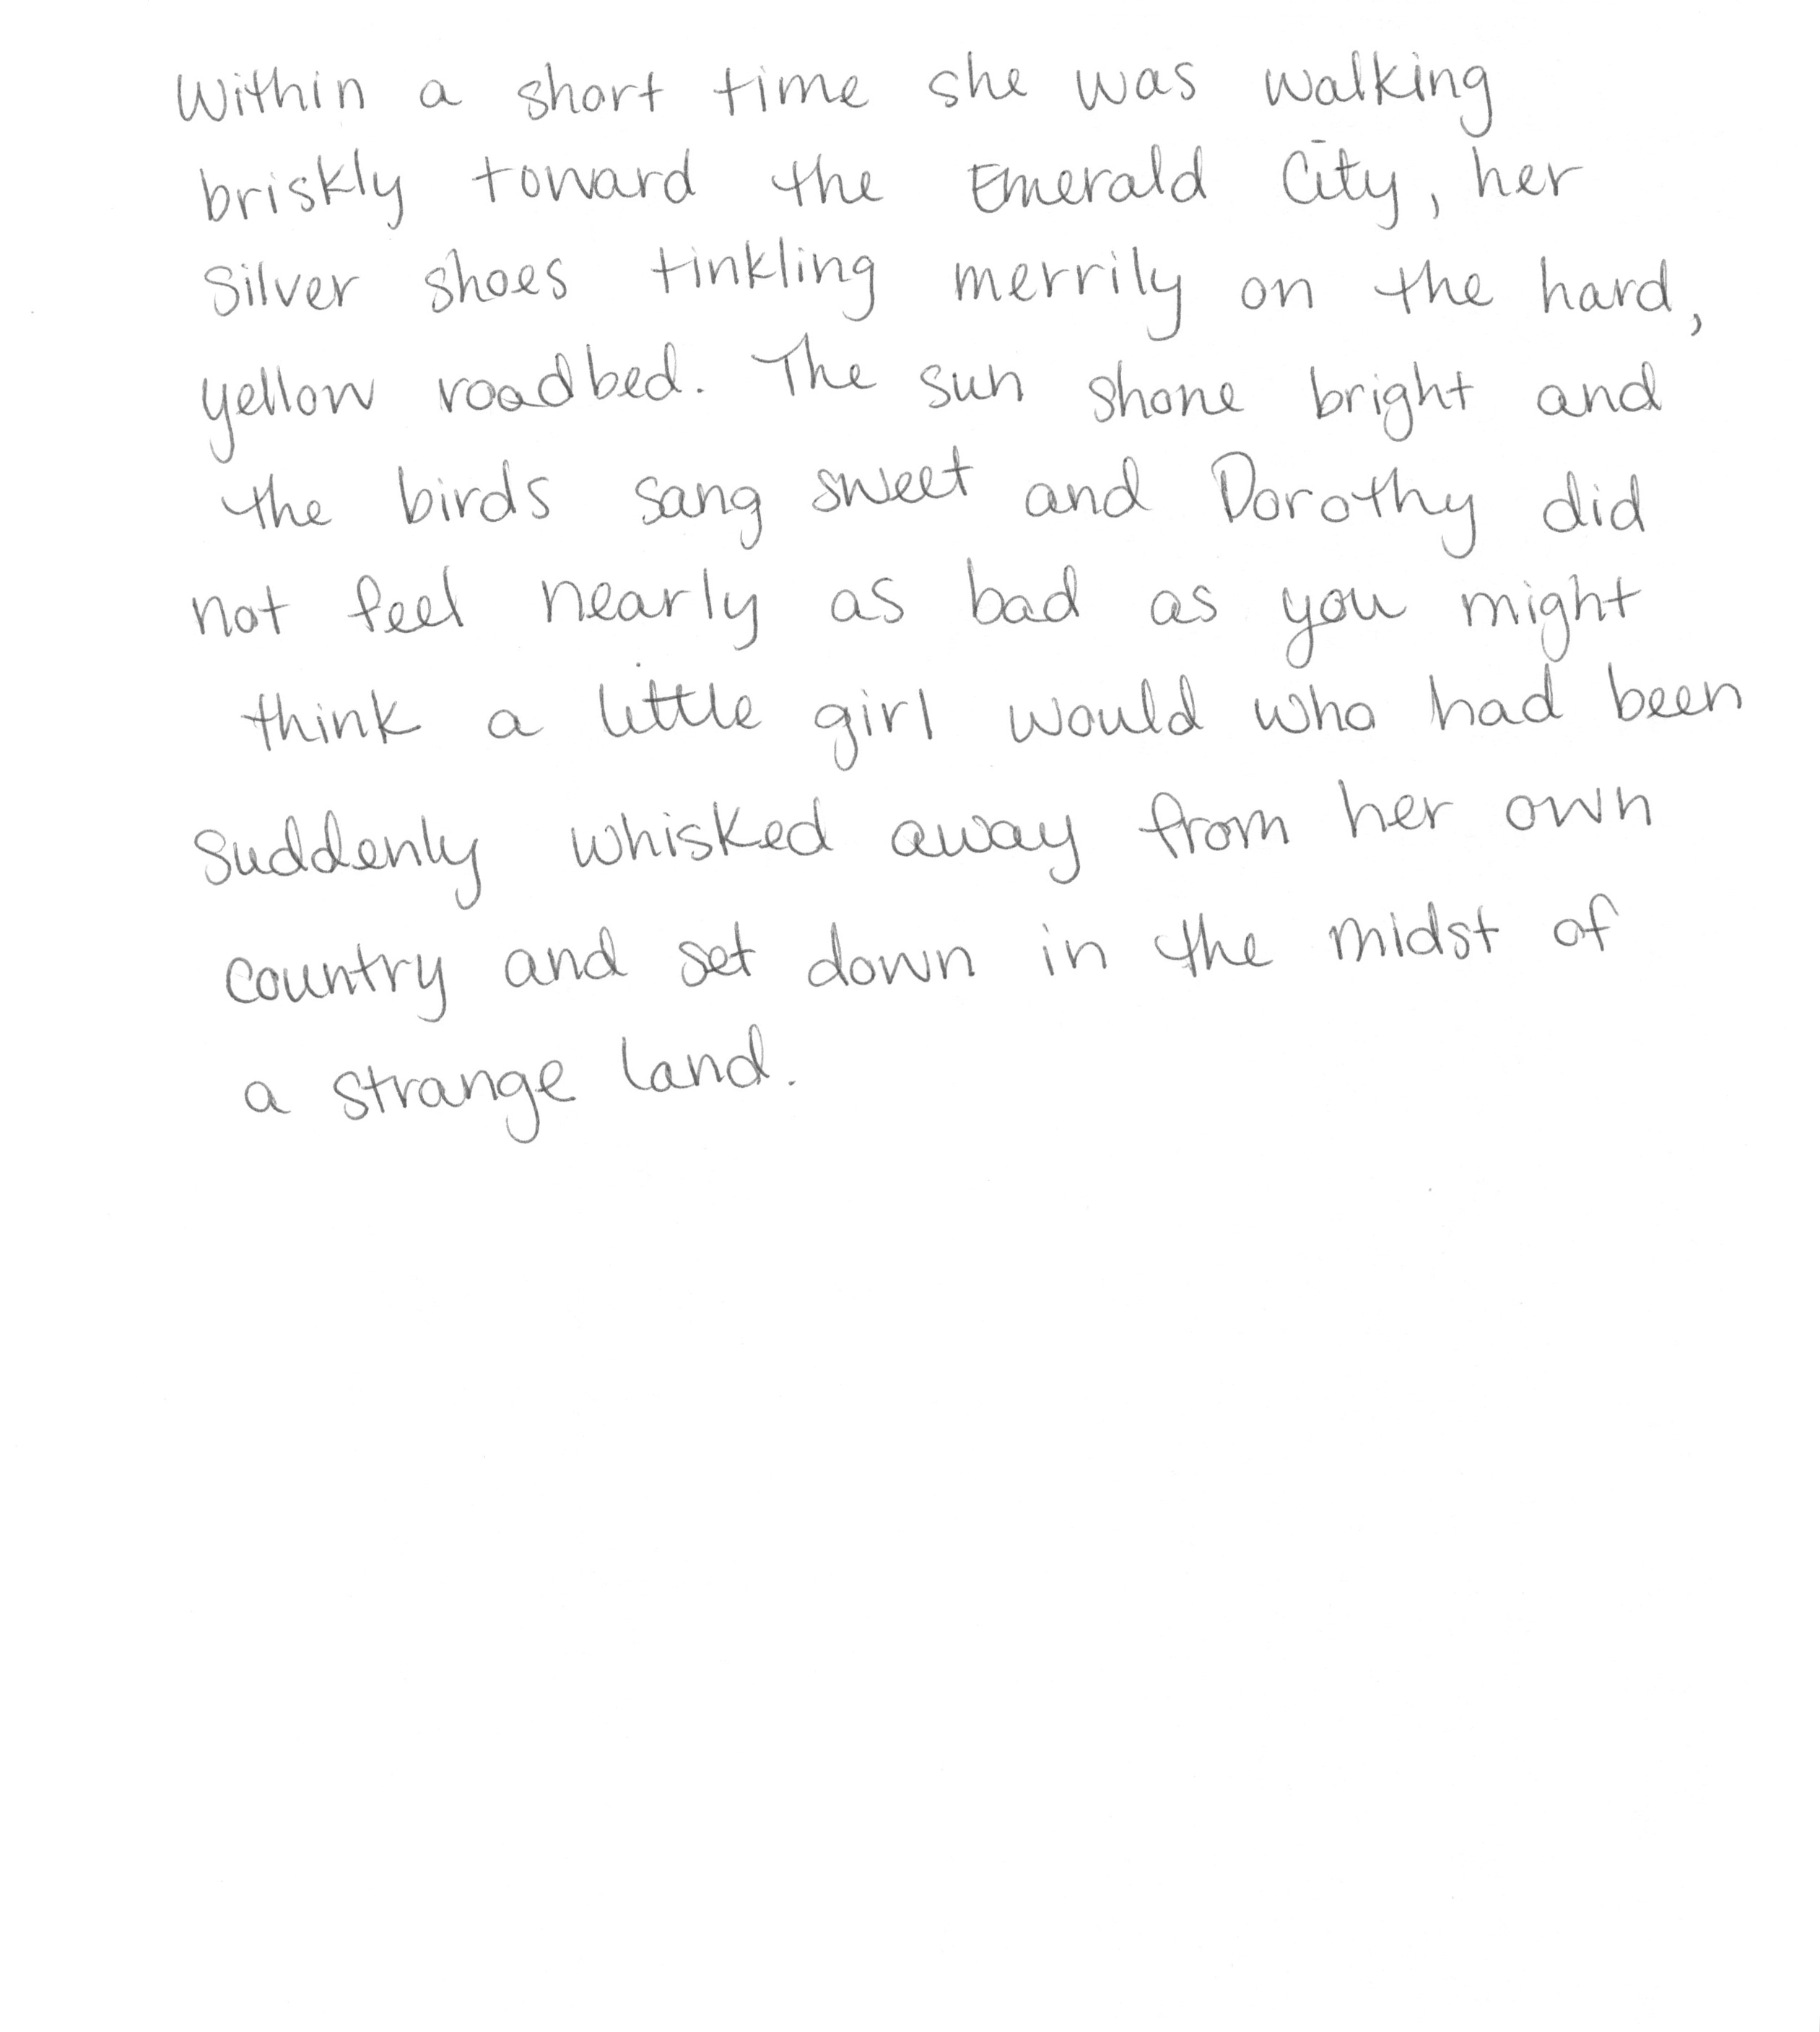 Within a short time she was walking
briskly toward the Emerald City, her
Silver shoes tinkling merrily on the hard,
yellow roadbed. The sun shone bright and
the birds sang sweet and Dorothy did
not feel nearly as bad as you might
think a little girl would who had been
suddenly whisked away from her own
country and set down in the midst of
a strange land.